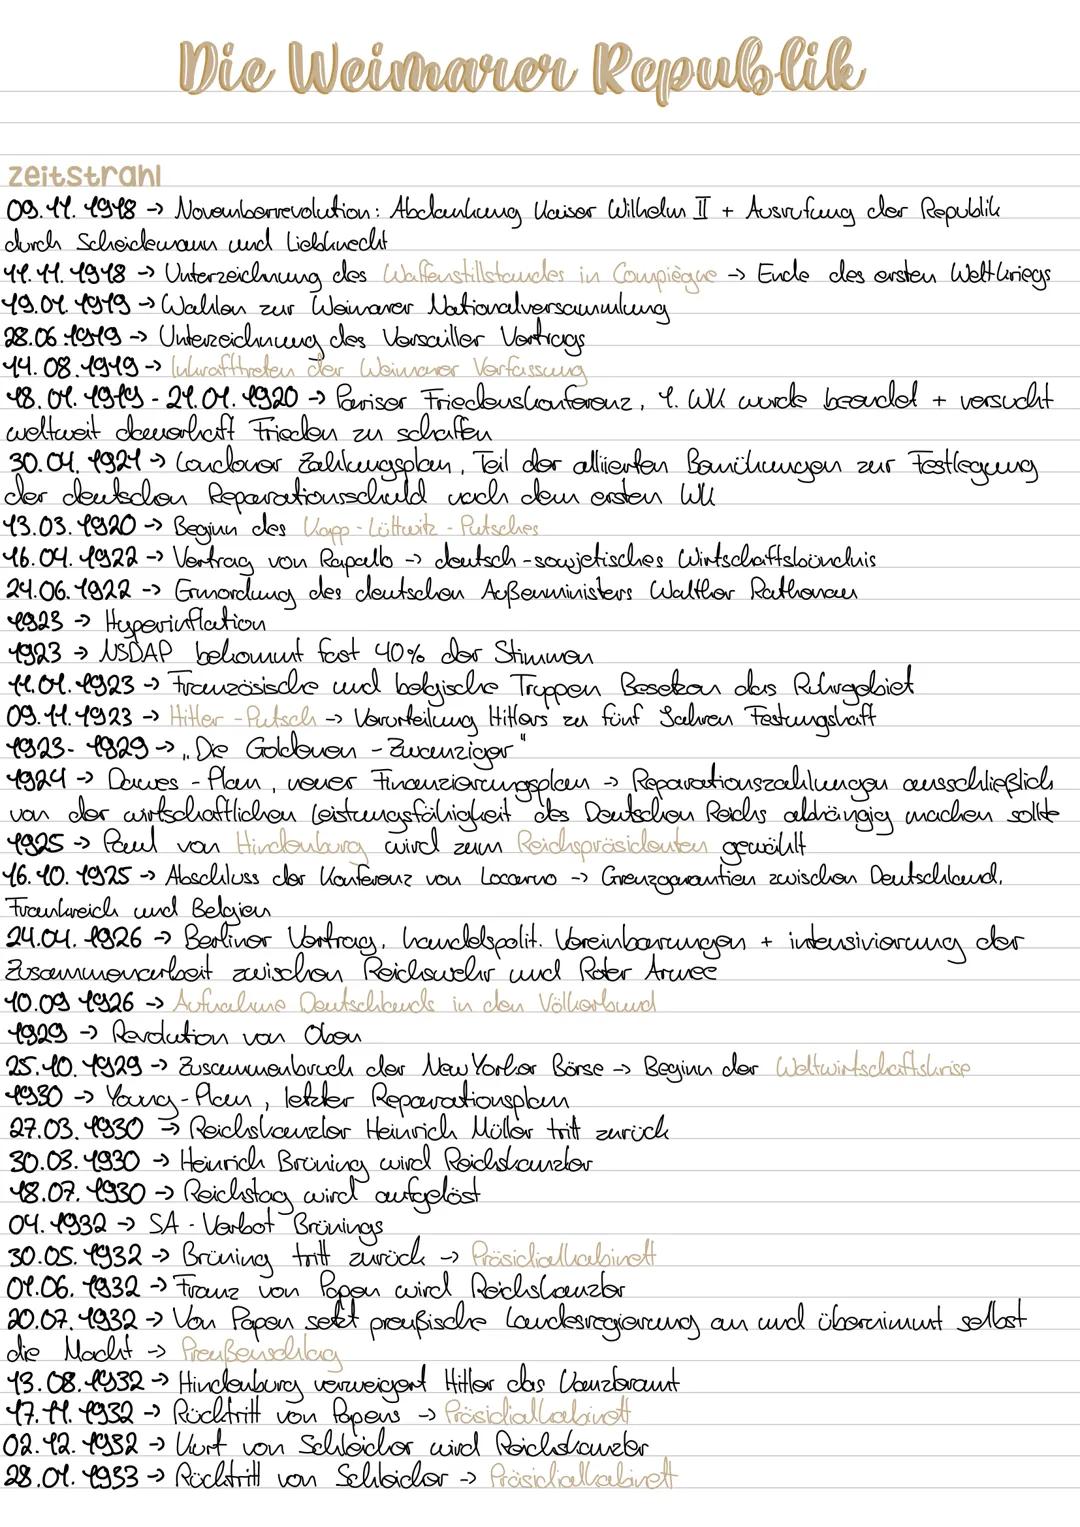 Die Weimarer Republik
zeitstrahl
09.11.1918 -> Novemberrevolution: Abdankung Kaiser Wilhelm II + Ausrufung der Republik
durch Scheidemann und Liebknecht
11.11.1918 -> Unterzeichnung des Waffenstillstandes in Compiègne -> Ende des ersten Weltkriegs
19.01.1919 -> Wahlen zur Weimarer Nationalversammlung
28.06.1919 -> Unterzeichnung des Versailler Vertrags
14.08.1919 -> Inkrafttreten der Weimarer Verfassung
18.01.1919 - 21.01.1920 -> Pariser Friedenskonferenz, 1. WK wurde beendet + versucht
weltweit dauerhaft Frieden zu schaffen
30.04.1921 -> Londoner Zahlungsplan, Teil der alliierten Bemühungen zur Festlegung
der deutschen Reparationsschuld nach dem ersten WK
13.03.1920 -> Beginn des Kapp-Lüttwitz-Putsches
16.04.1922 -> Vertrag von Rapallo -> deutsch-sowjetisches Wirtschaftsbündnis
24.06.1922 -> Ermordung des deutschen Außenministers Walther Rathenau
1923 -> Hyperinflation
1923 -> NSDAP bekommt fast 40% der Stimmen
11.01.1923 -> Französische und belgische Truppen Besetzen das Ruhrgebiet
09.11.1923 -> Hitler-Putsch -> Verurteilung Hitlers zu fünf Jahren Festungshaft
1923-1929 -> „Die Goldenen-Zwanziger"
1924 -> Dawes-Plan, neuer Finanzierungsplan -> Reparationszahlungen ausschließlich
von der wirtschaftlichen Leistungsfähigkeit des Deutschen Reichs abhängig machen sollte
1925 -> Paul von Hindenburg wird zum Reichspräsidenten gewählt
16.10.1925 -> Abschluss der Konferenz von Locarno -> Grenzgarantien zwischen Deutschland,
Frankreich und Belgien
24.04.1926 -> Berliner Vertrag, handelspolit. Vereinbarungen + intensivierung der
Zusammenarbeit zwischen Reichswehr und Roter Armee
10.09 1926 -> Aufnahme Deutschlands in den Völkerbund
1929 -> Revolution von Oben
25.10.1929 -> Zusammenbruch der New Yorker Börse -> Beginn der Weltwirtschaftskrise
1930 -> Young-Plan, letzter Reparationsplan
27.03.1930 -> Reichskanzler Heinrich Müller tritt zurück
30.03.1930 -> Heinrich Brüning wird Reichskanzler
18.07.1930 -> Reichstag wird aufgelöst
04.1932 -> SA-Verbot Brünings
30.05.1932 -> Brüning tritt zurück -> Präsidialkabinett
01.06.1932 -> Franz von Papen wird Reichskanzler
20.07.1932 -> Von Papen setzt preußische Landesregierung an und übernimmt selbst
die Macht -> Preußenschlag
13.08.1932 -> Hindenburg verweigert Hitler das Kanzleramt
17.11.1932 -> Rücktritt von Papens -> Präsidialkabinett
02.12.1932 -> Kurt von Schleicher wird Reichskanzler
28.01.1933 -> Rücktritt von Schleicher -> Präsidialkabinett